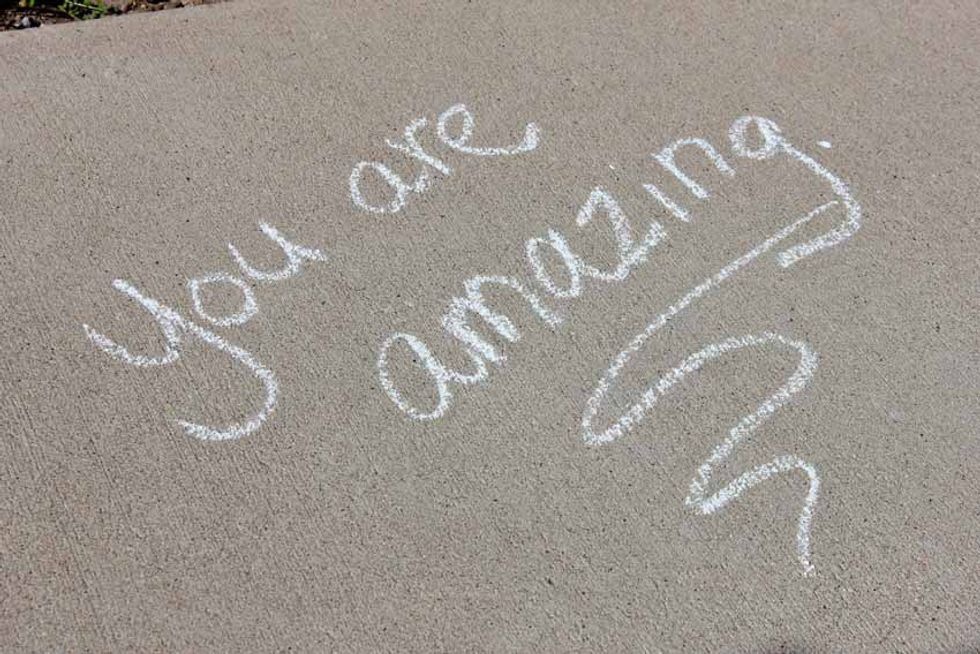 you are
amazing.